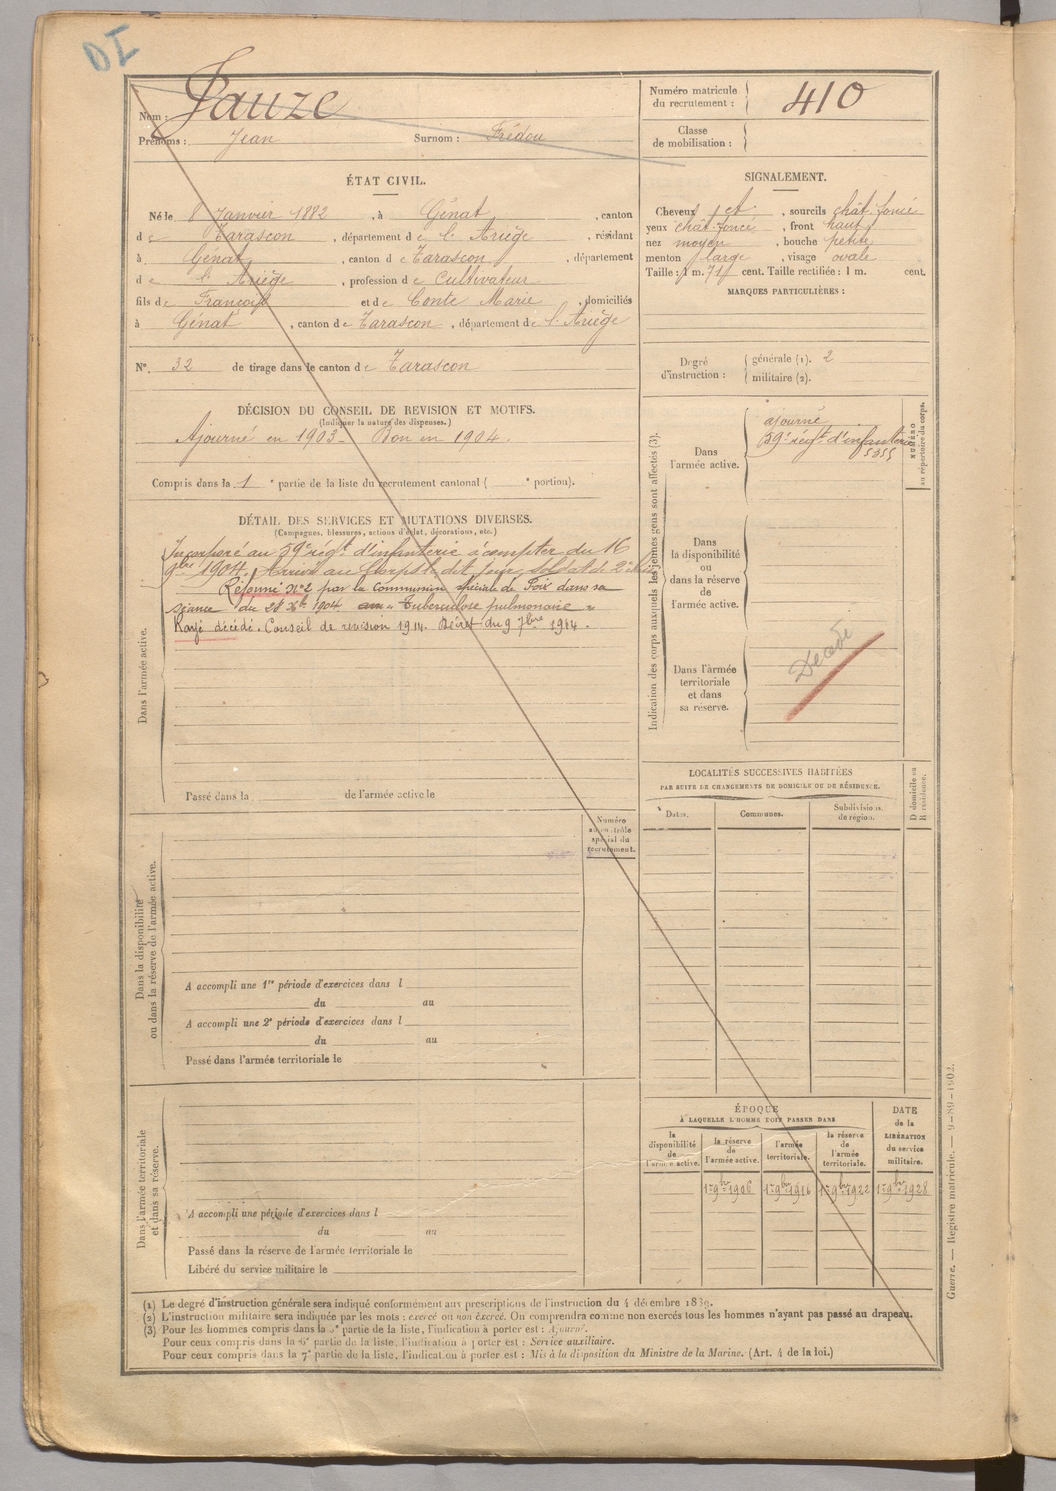 DI
Nom : Fauze
Prénoms : Jean Surnom : Frédou
Numéro matricule du recrutement : 410
Classe de mobilisation :
ÉTAT CIVIL.
Né le 8 Janvier 1882, à Génat, canton
de Tarascon, département de l'Ariège, résidant
à Génat, canton de Tarascon, département
de l'Ariège, profession de Cultivateur
fils de François et de Conte Marie, domiciliés
à Génat, canton de Tarascon, département de l'Ariège
N° 32 de tirage dans le canton de Tarascon
SIGNALEMENT.
Cheveux et, sourcils chât. foncé
yeux chât. foncé, front haut
nez moyen, bouche petite
menton large, visage ovale
Taille : 1 m. 71 cent. Taille rectifiée : 1 m. cent.
MARQUES PARTICULIÈRES :
Degré d'instruction : générale (1). 2
militaire (2).
DÉCISION DU CONSEIL DE REVISION ET MOTIFS.
(Indiquer la nature des dispenses.)
Ajourné en 1903 - Bon en 1904.
Compris dans la 1e partie de la liste du recrutement cantonal ( e portion).
DÉTAIL DES SERVICES ET MUTATIONS DIVERSES.
(Campagnes, blessures, actions d'éclat, décorations, etc.)
Dans l'armée active.
Incorporé au 59e régt d'infanterie à compter du 16
9bre 1904. Arrivé au Corps le dit jour, soldat de 2e
Réformé No 2 par la Commission spéciale de Foix dans sa
séance du 28 Xbre 1904 "Tuberculose pulmonaire"
Rayé décédé. Conseil de revision 1914. Décret du 9 7bre 1914.
Passé dans la de l'armée active le
Indication des corps auxquels les jeunes gens sont affectés (3).
NUMÉRO au répertoire du corps.
Dans l'armée active.
ajourné
59e régt d'infanterie
5355
Dans la disponibilité ou dans la réserve de l'armée active.
Dans l'armée territoriale et dans sa réserve.
Décédé
LOCALITÉS SUCCESSIVES HABITÉES
PAR SUITE DE CHANGEMENTS DE DOMICILE OU DE RÉSIDENCE.
Dates. Communes. Subdivisions de région. D domicile ou R résidence.
Dans la disponibilité ou dans la réserve de l'armée active.
Numéro au contrôle spécial du recrutement.
A accompli une 1re période d'exercices dans l
du au
A accompli une 2e période d'exercices dans l
du au
Passé dans l'armée territoriale le
Dans l'armée territoriale et dans sa réserve.
A accompli une période d'exercices dans l
du au
Passé dans la réserve de l'armée territoriale le
Libéré du service militaire le
ÉPOQUE
À LAQUELLE L'HOMME DOIT PASSER DANS
la disponibilité de l'armée active.
la réserve de l'armée active.
l'armée territoriale.
la réserve de l'armée territoriale.
DATE de la LIBÉRATION du service militaire.
1er 9bre 1906 1er 9bre 1916 1er 9bre 1922 1er 9bre 1928
(1) Le degré d'instruction générale sera indiqué conformément aux prescriptions de l'instruction du 4 décembre 1889.
(2) L'instruction militaire sera indiquée par les mots : exercé ou non exercé. On comprendra comme non exercés tous les hommes n'ayant pas passé au drapeau.
(3) Pour les hommes compris dans la 5e partie de la liste, l'indication à porter est : Ajourné.
Pour ceux compris dans la 6e partie de la liste, l'indication à porter est : Service auxiliaire.
Pour ceux compris dans la 7e partie de la liste, l'indication à porter est : Mis à la disposition du Ministre de la Marine. (Art. 4 de la loi.)
Guerre. — Registre matricule. — 9-89-1902.